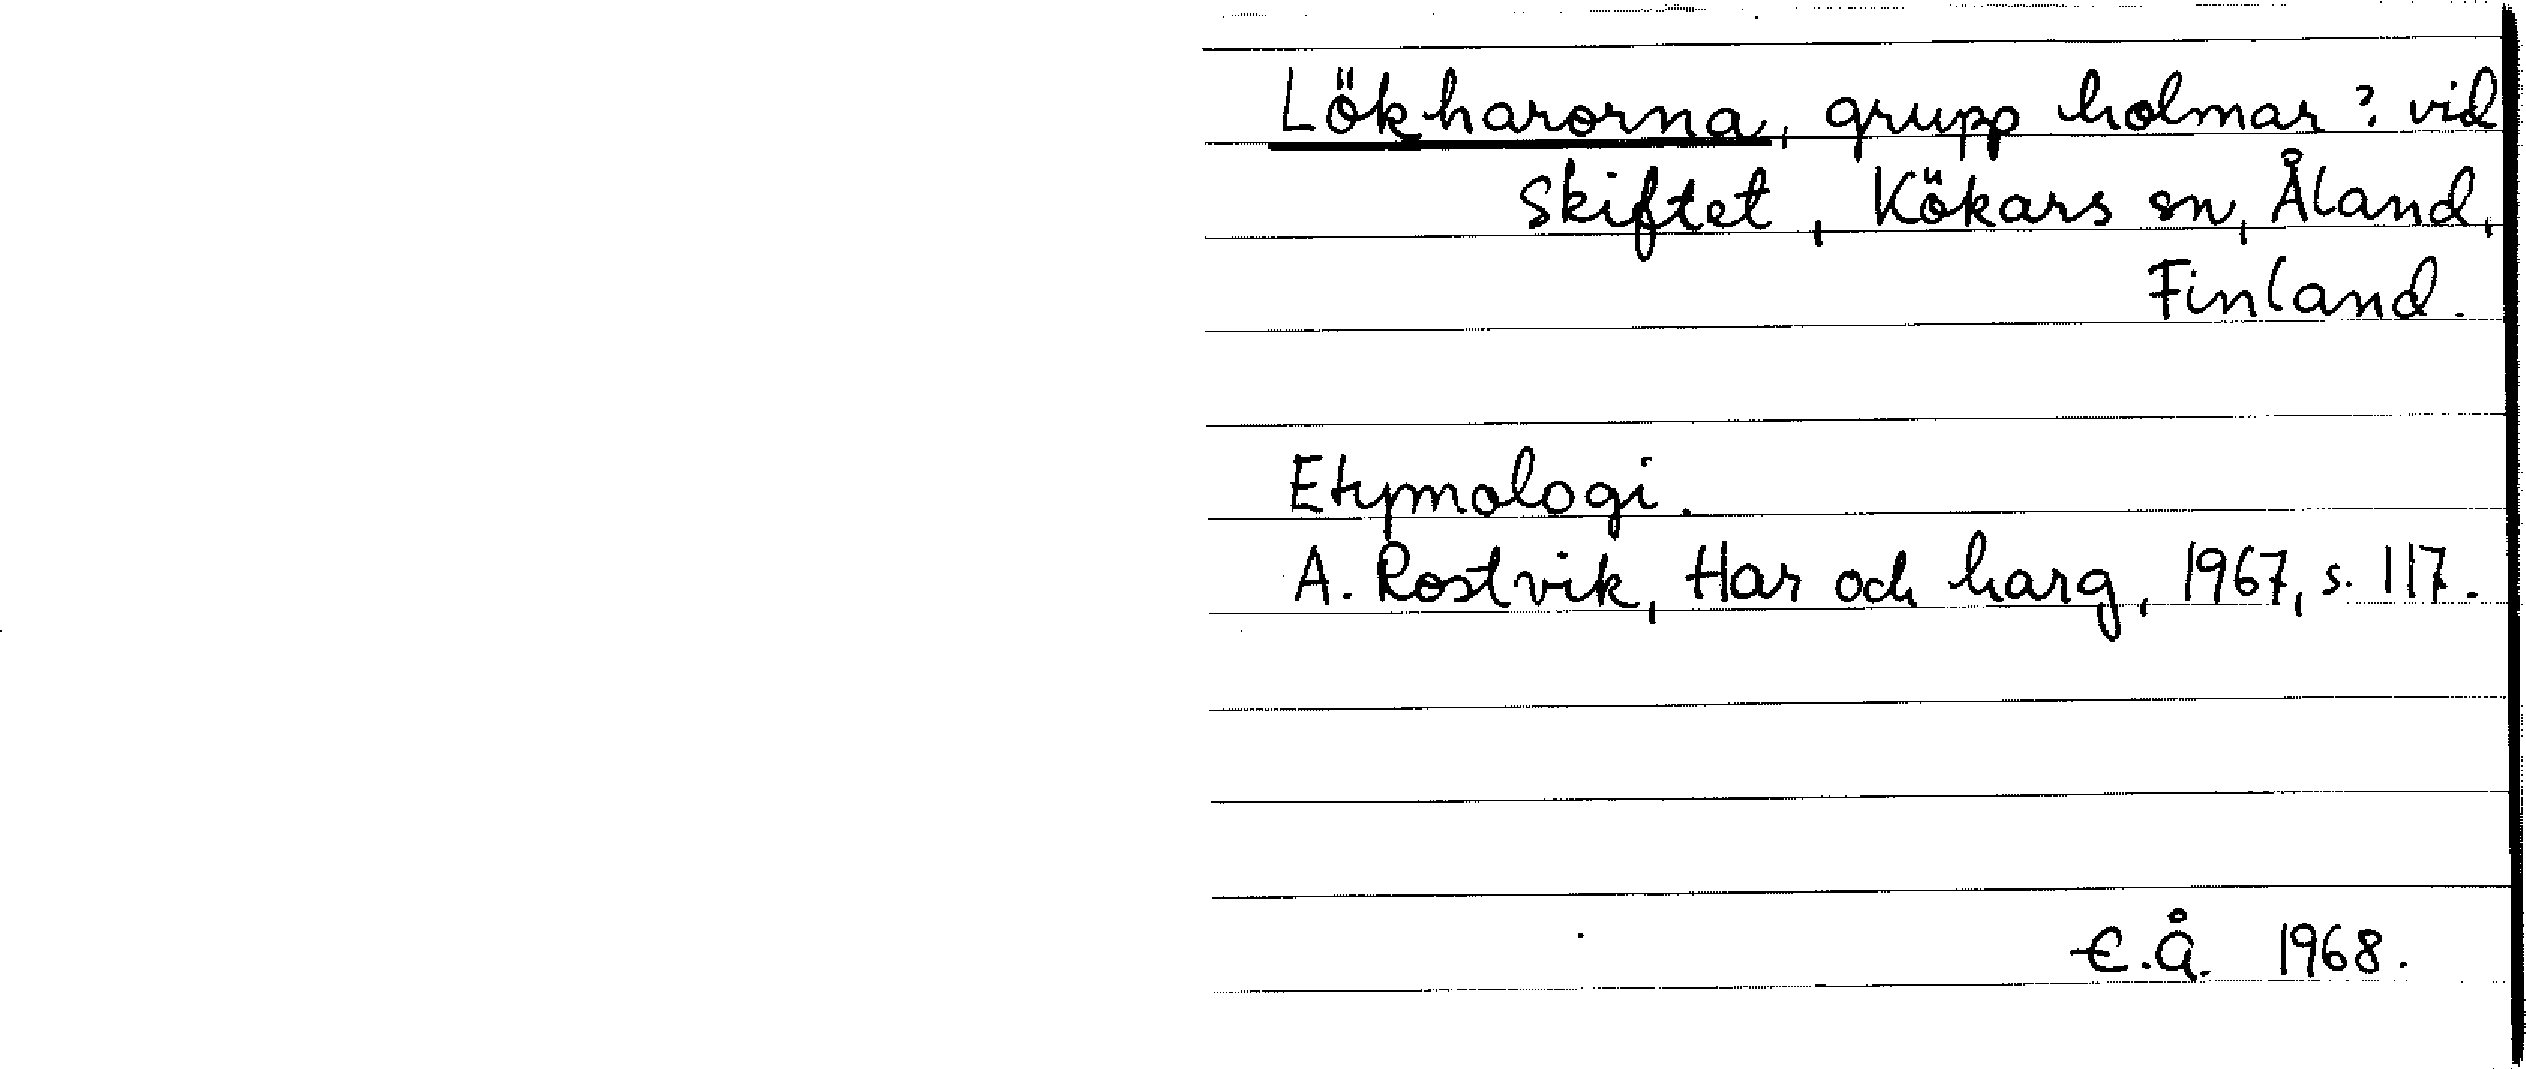 Lökharorna, grupp holmar? vid
Skiftet, Kökars sn, Åland,
Finland.
Etymologi.
A. Rostvik, Har och harg, 1967, s. 117.
E.Å. 1968.